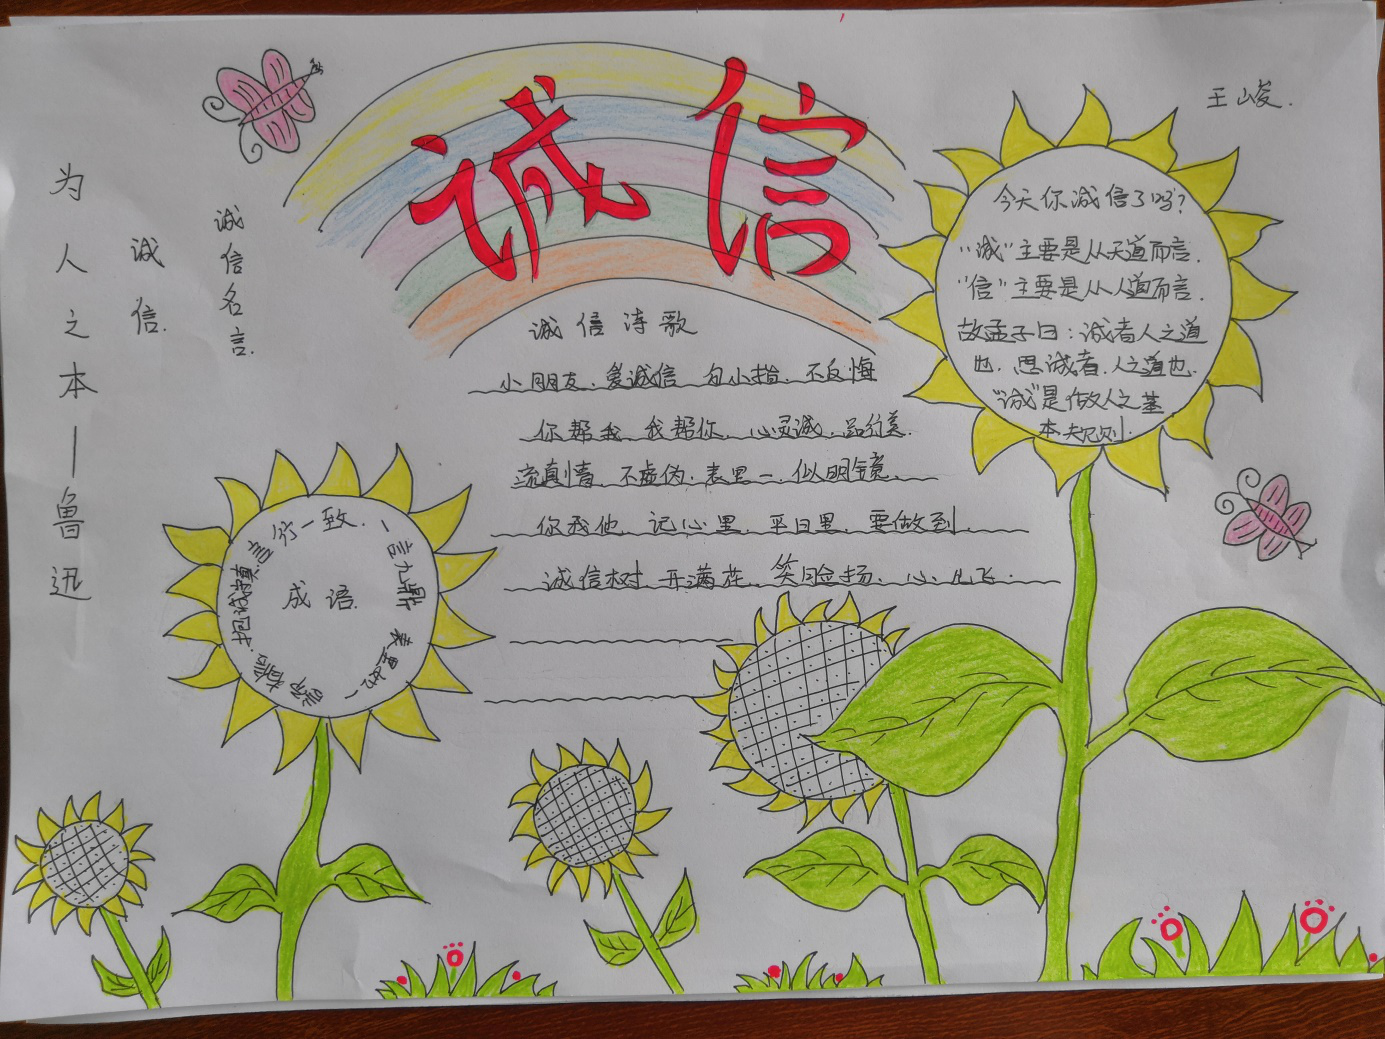 诚信
王峻.
诚信名言.
诚信.
为人之本—鲁迅
诚信诗歌
小朋友.爱诚信 勾小指.不反悔
你帮我 我帮你.心灵诚.品行美.
流真情 不虚伪.表里一.似明镜.
你我他 记心里.平日里.要做到.
诚信树 开满花.笑脸扬.心儿飞.
今天你诚信了吗?
"诚"主要是从天道而言.
"信"主要是从人道而言.
故孟子曰:诚者人之道
也.思诚者.人之道也.
"诚"是做人之基
本规则.
成语.
言行一致.
一言九鼎
表里如一
抱诚守真